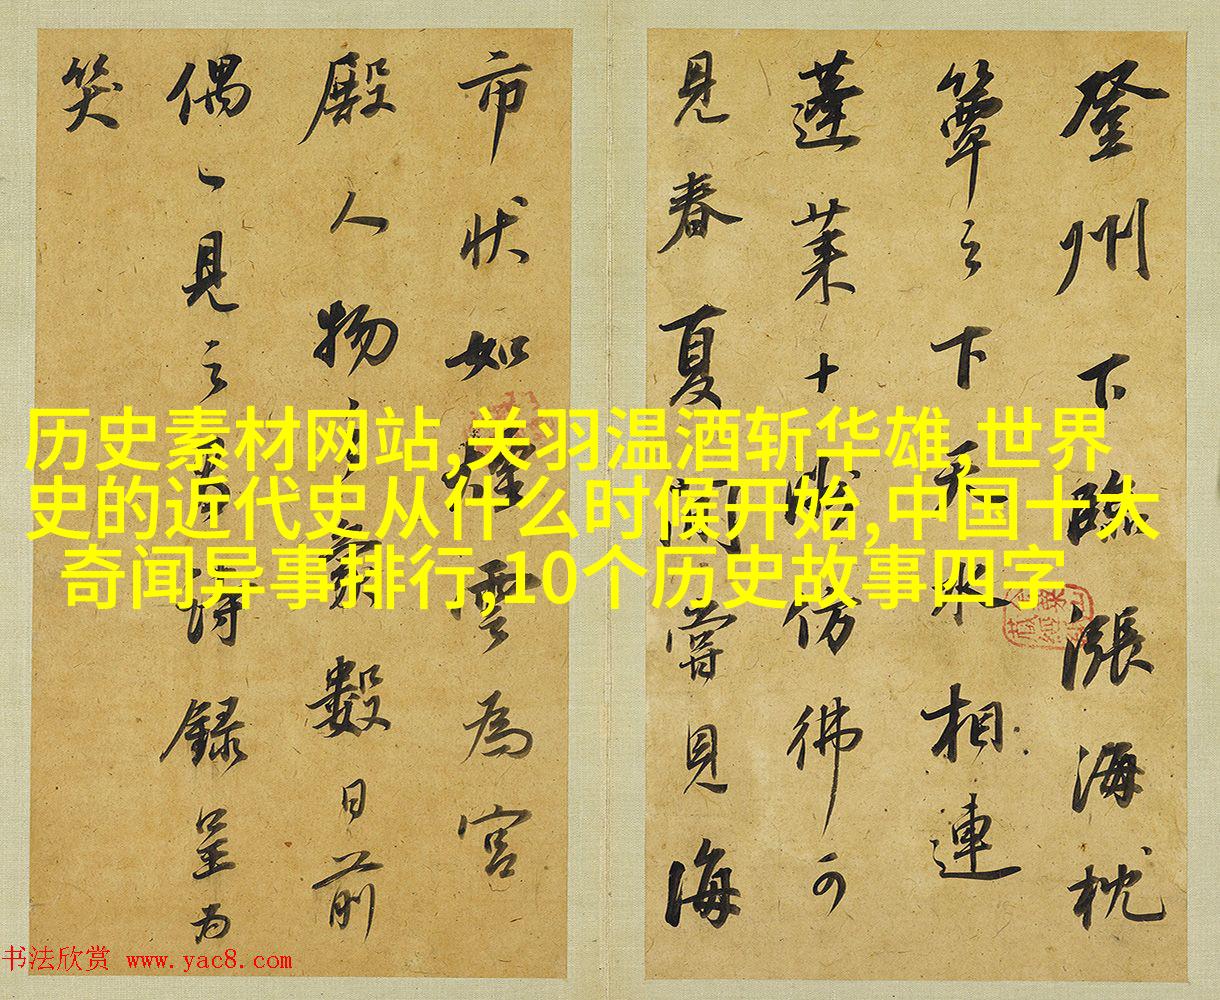 登州下臨漲海枕
簟之下天水相連
蓬莱仿彿可
見春夏間嘗見海
市状如煙雲為宮
殿人物之象數日前
偶一見之有詩録呈为
笑
历史素材网站,关羽温酒斩华雄,世界
史的近代史从什么时候开始,中国十大
奇闻异事排行,10个历史故事四字
书法欣赏 www.yac8.com